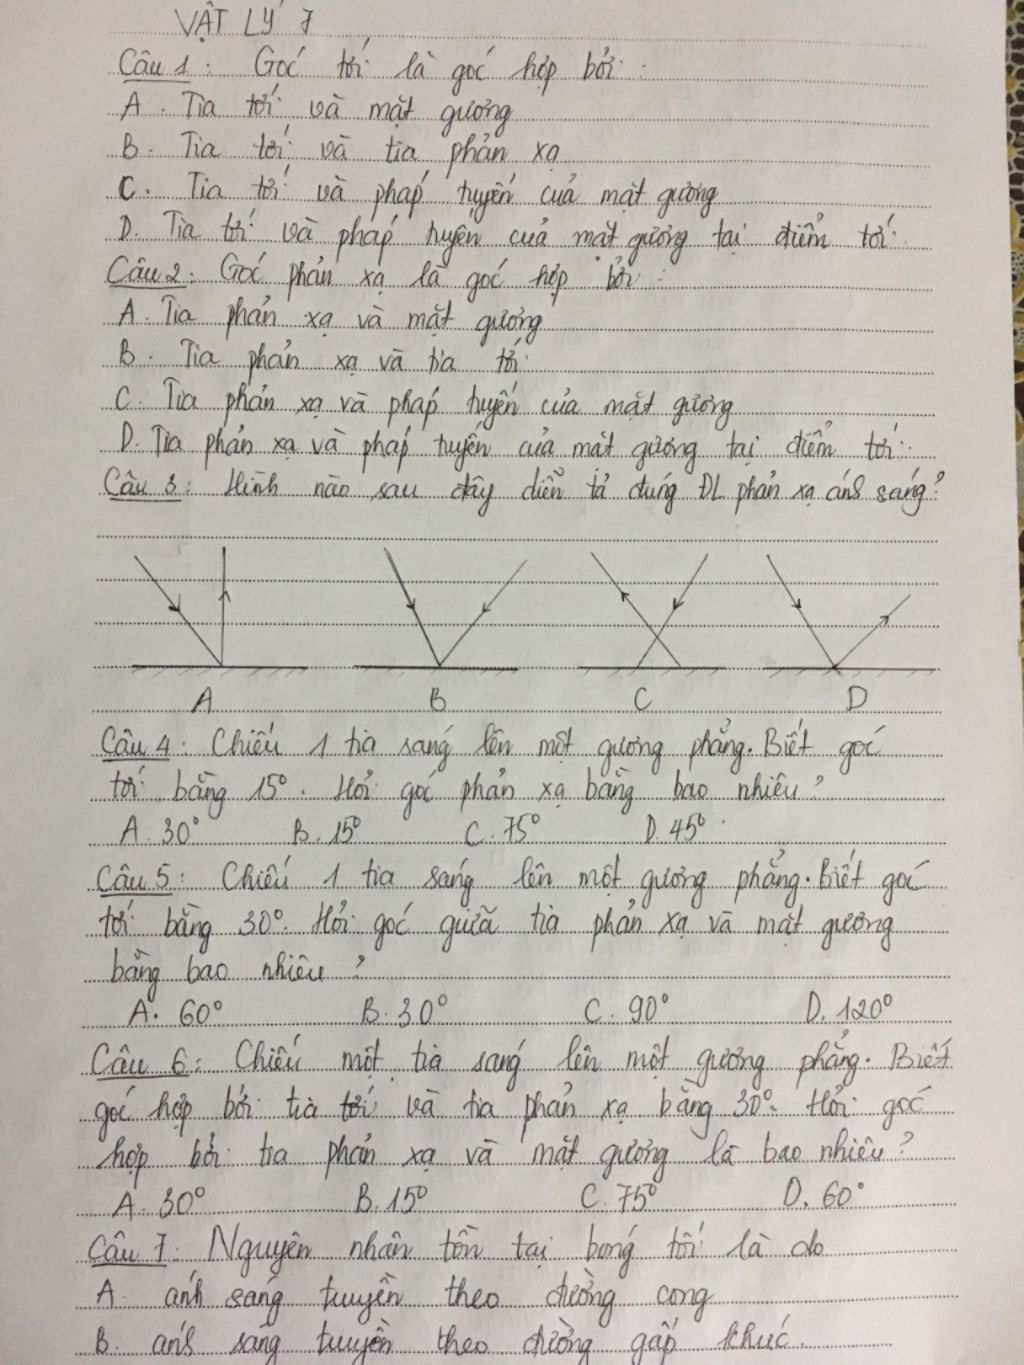 VẬT LÝ 7
Câu 1: Góc tới là góc hợp bởi:
A. Tia tới và mặt gương
B. Tia tới và tia phản xạ
C. Tia tới và pháp tuyến của mặt gương
D. Tia tới và pháp tuyến của mặt gương tại điểm tới.
Câu 2: Góc phản xạ là góc hợp bởi:
A. Tia phản xạ và mặt gương
B. Tia phản xạ và tia tới
C. Tia phản xạ và pháp tuyến của mặt gương
D. Tia phản xạ và pháp tuyến của mặt gương tại điểm tới.
Câu 3: Hình nào sau đây diễn tả đúng ĐL phản xạ ánh sáng?
A B C D
Câu 4: Chiếu 1 tia sáng lên một gương phẳng. Biết góc
tới bằng 15°. Hỏi góc phản xạ bằng bao nhiêu?
A. 30° B. 15° C. 75° D. 45°
Câu 5: Chiếu 1 tia sáng lên một gương phẳng. Biết góc
tới bằng 30°. Hỏi góc giữa tia phản xạ và mặt gương
bằng bao nhiêu?
A. 60° B. 30° C. 90° D. 120°
Câu 6: Chiếu một tia sáng lên một gương phẳng. Biết
góc hợp bởi tia tới và tia phản xạ bằng 30°. Hỏi góc
hợp bởi tia phản xạ và mặt gương là bao nhiêu?
A. 30° B. 15° C. 75° D. 60°
Câu 7: Nguyên nhân tồn tại bóng tối là do
A. ánh sáng truyền theo đường cong
B. ánh sáng truyền theo đường gấp khúc.